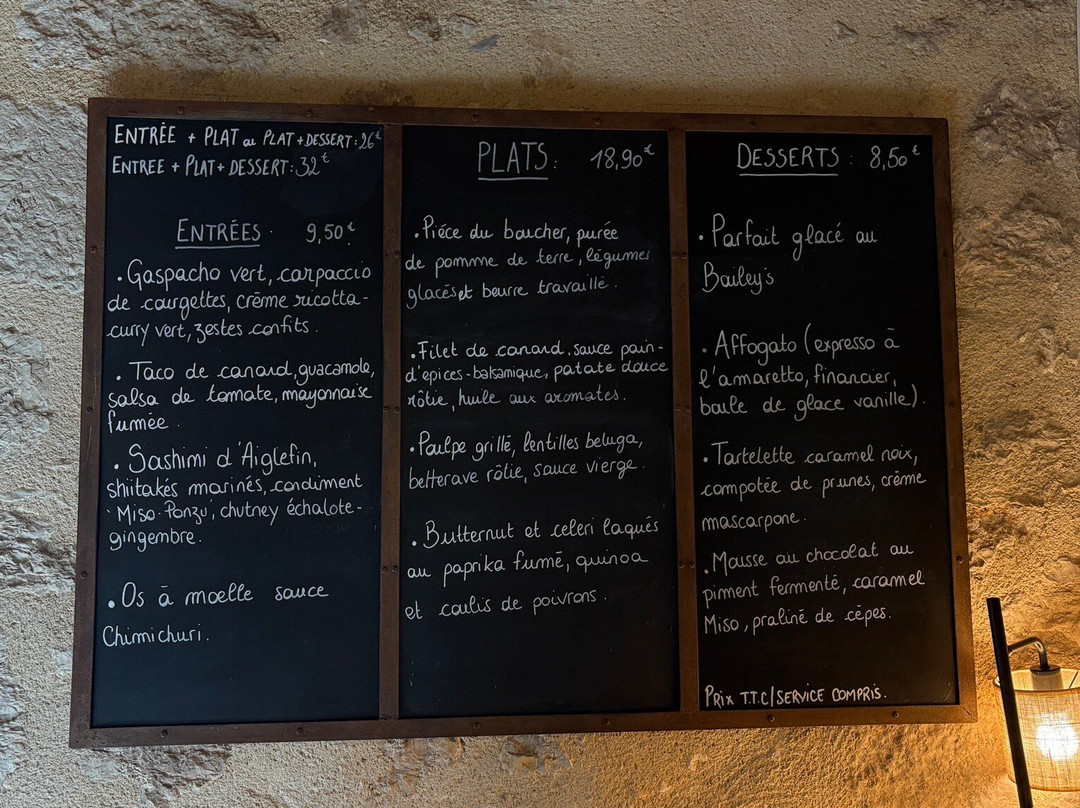 ENTRÉE + PLAT ou PLAT + DESSERT : 26€
ENTREE + PLAT + DESSERT : 32€
ENTRÉES : 9,50€
• Gaspacho vert, carpaccio
de courgettes, crème ricotta-
curry vert, zestes confits.
• Taco de canard, guacamole,
salsa de tomate, mayonnaise
fumée.
• Sashimi d'Aiglefin,
shiitakés marinés, condiment
'Miso-Ponzu', chutney échalote-
gingembre.
• Os à moelle sauce
Chimichuri.
PLATS : 18,90€
• Piéce du boucher, purée
de pomme de terre, légumes
glacés et beurre travaillé.
• Filet de canard, sauce pain-
d'épices-balsamique, patate douce
rôtie, huile aux aromates.
• Poulpe grillé, lentilles beluga,
betterave rôtie, sauce vierge.
• Butternut et celeri laqués
au paprika fumé, quinoa
et coulis de poivrons.
DESSERTS : 8,50€
• Parfait glacé au
Bailey's
• Affogato (expresso à
l'amaretto, financier,
boule de glace vanille).
• Tartelette caramel noix,
compotée de prunes, crème
mascarpone.
• Mousse au chocolat au
piment fermenté, caramel
Miso, praliné de cèpes.
PRIX T.T.C/SERVICE COMPRIS.